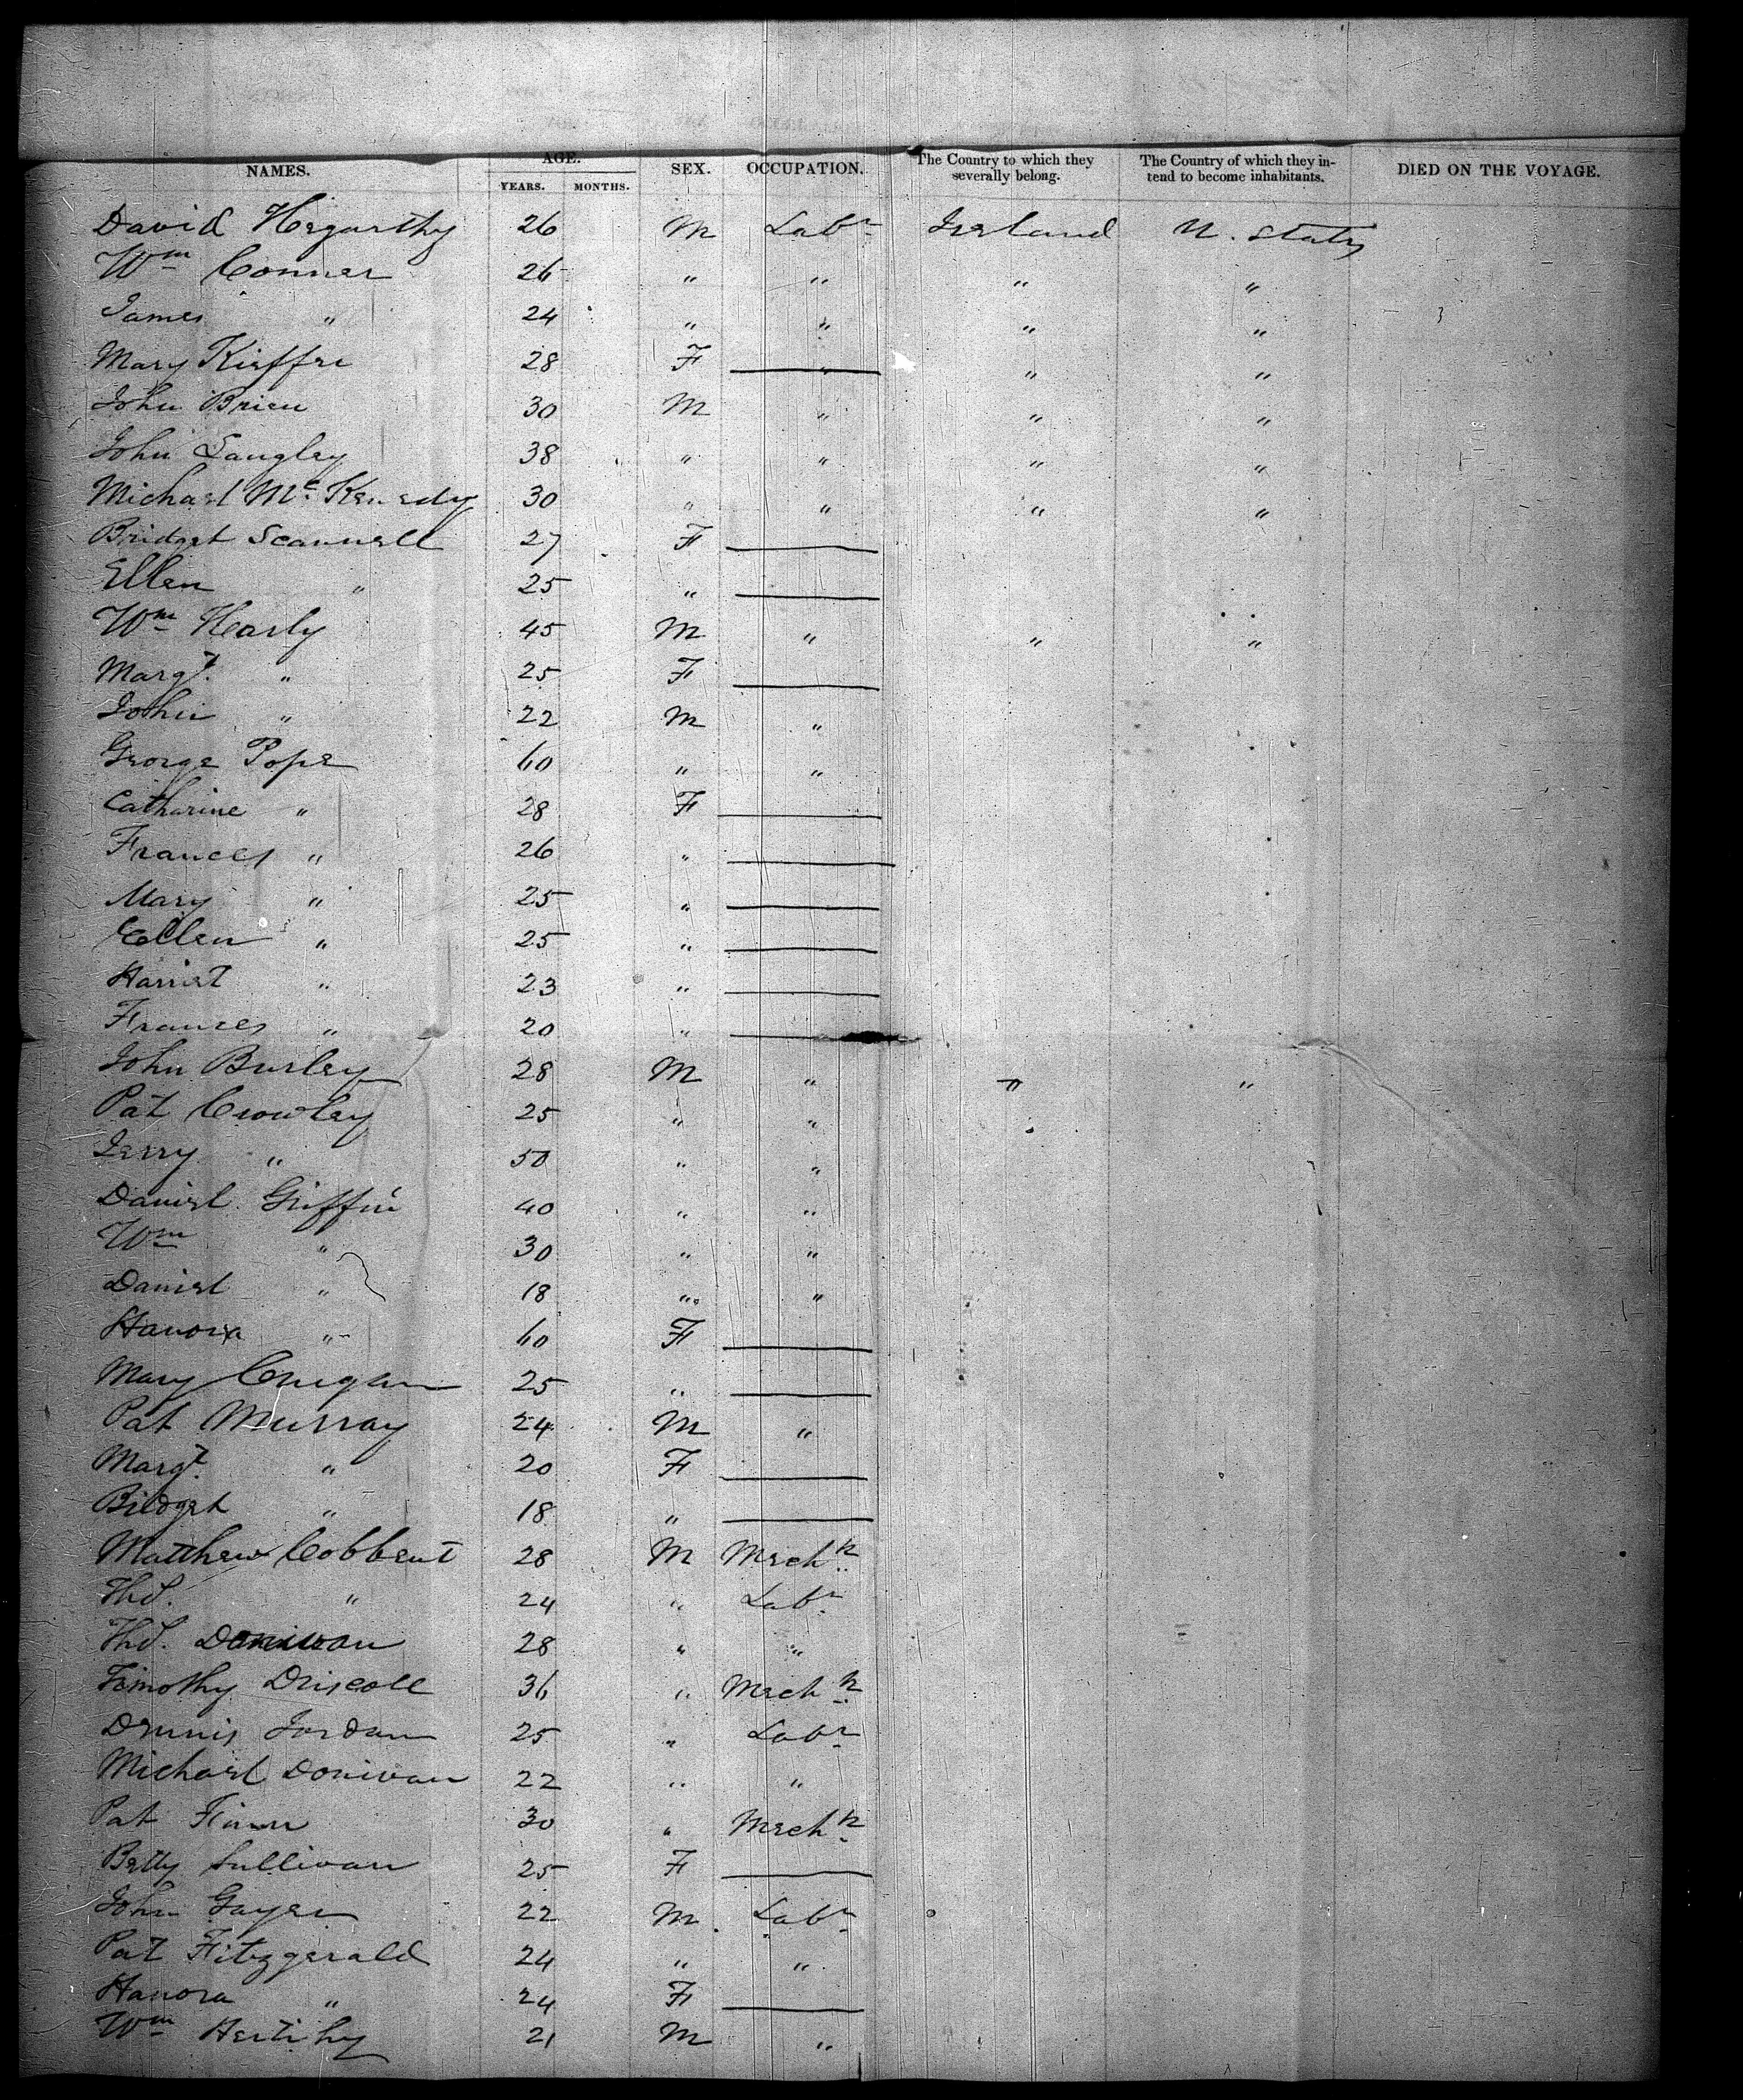 NAMES. AGE. SEX. OCCUPATION. The Country to which they severally belong. The Country of which they intend to become inhabitants. DIED ON THE VOYAGE.
YEARS. MONTHS.
David Hegarthy 26 M Labr Ireland U. States
Wm Conner 26 " " " "
James " 24 " " " "
Mary Kieffe 28 F " " "
John Brien 30 M " " "
John Langley 38 " " " "
Michael Mc Kennedy 30 " " " "
Bridget Scannell 27 F
Ellen " 25 "
Wm Hearly 45 M " " "
Margt. " 25 F
John " 22 M "
George Pope 60 " "
Catharine " 28 F
Frances " 26 "
Mary " 25 "
Ellen " 25 "
Harriet " 23 "
Frances " 20 "
John Burley 28 M " " "
Pat Crowley 25 " "
Jerry " 50 " "
Daniel Griffin 40 " "
Wm " 30 " "
Daniel " 18 " "
Hanora " 60 F
Mary 25 "
Pat Murray 24 M "
Margt. " 20 F
Bridget " 18 "
Matthew Cobbent 28 M Mechn
Ths. " 24 " Labr
Ths. Donivan 28 " "
Timothy Driscoll 36 " Mechn
Dennis Jordan 25 " Labr
Michael Donivan 22 " "
Pat Finn 30 " Mechn
Betty Sullivan 25 F
John 22 M Labr
Pat Fitzgerald 24 " "
Hanora " 24 F
Wm Herlihy 21 M "